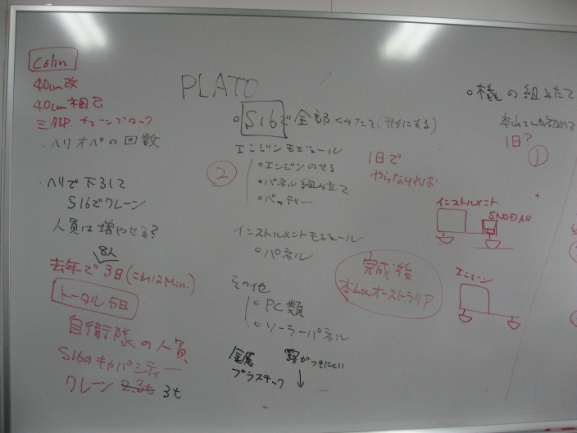 Colin
40cm改
40cm相己
三脚 チェーンブロック
・ヘリオペの回数
・ヘリで下ろして
S16でクレーン
人員は増やせる?
8人
去年で3日(これはMin.)
トータル5日
自衛隊の人員
S16のキャパシティー
クレーン 2.3t 3t
PLATO
S16で全部くみたて
エンジンモジュール
②
エンジンのせる
パネル組み立て
バッテリー
1日で
やらなければ
インストルメントモジュール
パネル
その他
PC類
ソーラーパネル
完成後
オーストラリア
金属
プラスチック
がつきにくい
機の組みたて
1日?
①
インストルメント
SNODAR
エンジン